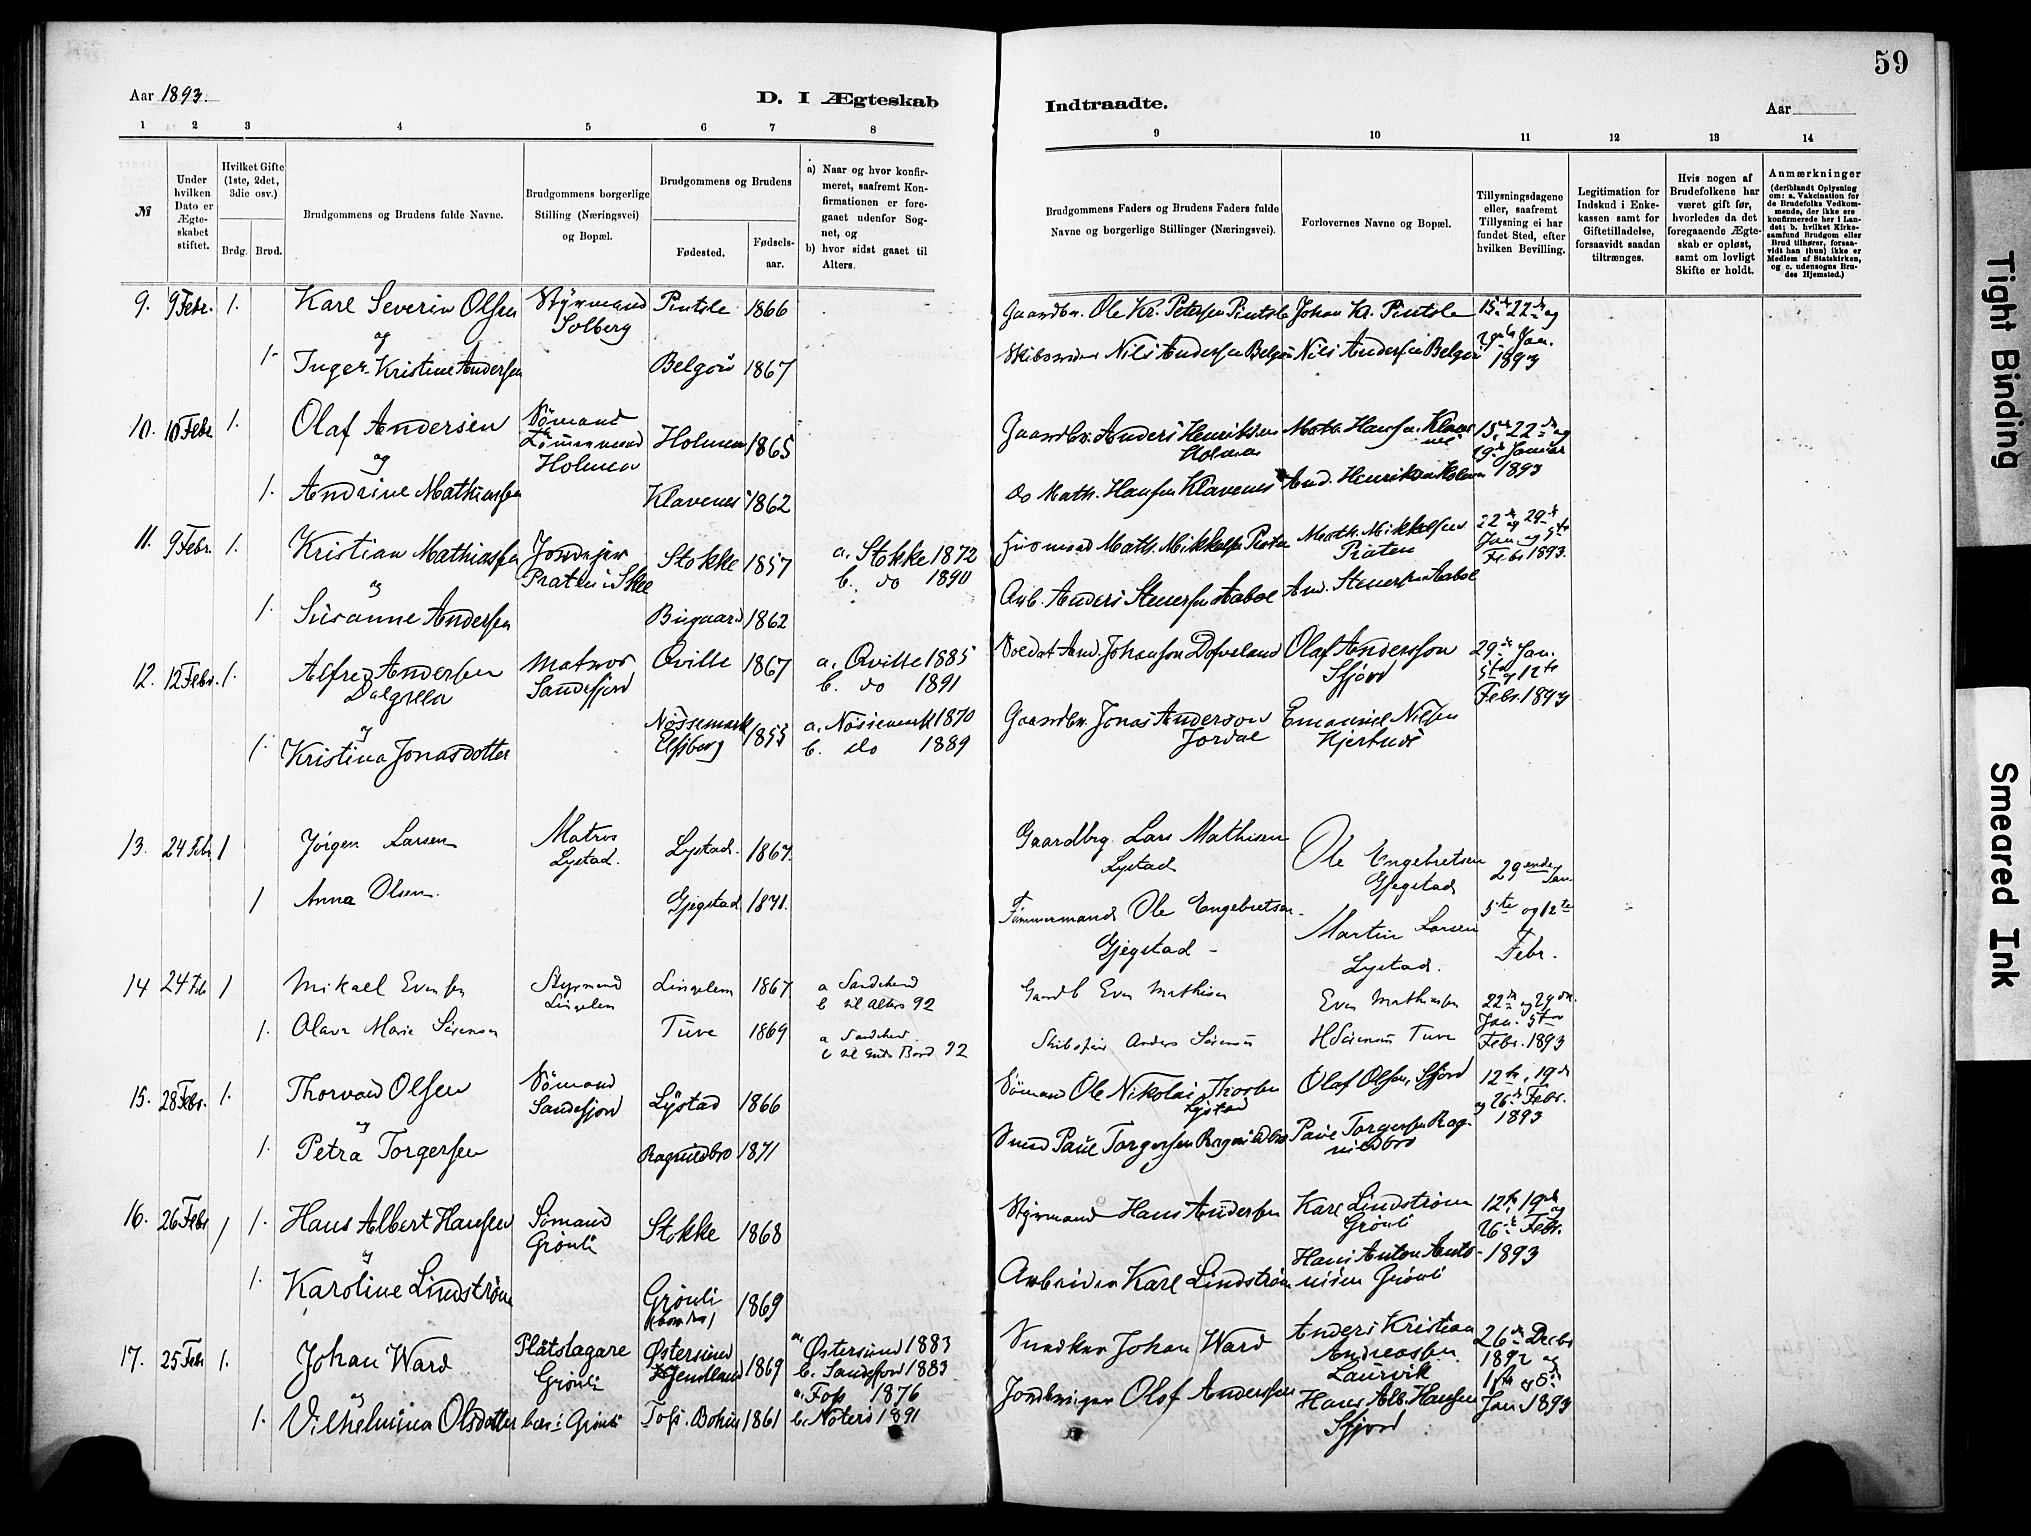 59
Aar 1893.
D. I Ægteskab
Indtraadte.
Aar
1 2 3 4 5 6 7 8 9 10 11 12 13 14
№
Under
hvilken
Dato er
Ægte-
skabet
stiftet.
Hvilket Gifte
(1ste, 2det,
3die osv.)
Brdg. Brud.
Brudgommens og Brudens fulde Navne.
Brudgommens borgerlige
Stilling (Næringsvei)
og Bopæl.
Brudgommens og Brudens
Fødested.
Fødsels-
aar.
a) Naar og hvor konfir-
meret, saafremt Kon-
firmationen er fore-
gaaet udenfor Sog-
net, og
b) hvor sidst gaaet til
Alters.
Brudgommens Faders og Brudens Faders fulde
Navne og borgerlige Stillinger (Næringsvei).
Forlovernes Navne og Bopæl.
Tillysningsdagene
eller, saafremt
Tillysning ei har
fundet Sted, efter
hvilken Bevilling.
Legitimation for
Indskud i Enke-
kassen samt for
Giftetilladelse,
forsaavidt saadan
tiltrænges.
Hvis nogen af
Brudefolkene har
været gift før,
hvorledes da det
foregaaende Ægte-
skab er opløst,
samt om lovligt
Skifte er holdt.
Anmærkninger
(deriblandt Oplysning
om: a. Vakcination for
de Brudefolks Vedkom-
mende, der ikke ere
konfirmerede her i Lan-
det; b. hvilket Kirke-
samfund Brudgom eller
Brud tilhører, forsaa-
vidt han (hun) ikke er
Medlem af Statskirken,
og c. udensogns Bru-
des Hjemsted.)
9. 9 Febr. 1. Karl Severin Olsen Styrmand Pintsle 1866 Gaardbr. Ole Kr. Petersen Pintsle Johan Kr. Pintsle 15de 22de og
og Solberg 29de Jan.
1. Inger Kristine Andersen 1867 Nils Andersen Nils Andersen 1893
10. 10 Febr 1. Olaf Andersen Sømand Holmen 1865 Gaardbr. Anders Henriksen Holmen Math. Hansen 15de 22de og
og Tømmermand
Holmen Januar
1. Andrine Mathiassen Klavenes 1862 do Math. Hansen Klavenes And. Henriksen Holmen 1893
11. 9 Febr. 1. Kristian Mathiassen Stokke 1857 a. Stokke 1872 Math. Mikkelsen Math. Mikkelsen 22de og 29de
b. do 1890 Jan og 5te
og Febr 1893.
1. Susanne Andersen 1862 Arb. Anders And.
12. 12 Febr. 1. Alfred Andersen Matros Qville 1867 a. Qville 1885 And. Johansson Olaf Andersson 29de Jan.
Dalgreen Sandefjord b. do 1891 Sfjord 5te og 12te
og Febr. 1893
1 Kristina Jonasdotter Nössemark 1855 a. Nössemark 1870 Gaardbr. Jonas Anderson Emanuel Nilsen
Elfsborg b. do 1889 Jordal
13. 24 Feb 1 Jørgen Larsen Matros Lystad. 1867. Gaardbrg. Lars Mathisen Ole Engebretsen 29ende Jan.
Lystad. Lystad Gjegstad
1 Anna Olsen. Gjegstad 1871. Tømmermand Ole Engebretsen Martin Larsen 5te og 12te
Gjegstad Lystad. Febr.
14 24 Feb 1 Mikael Evensen Styrmand Lingelem 1867 a Sandeherd Gaardb Even Mathisen Even Mathisen 22de og 29de
Lingelem b til Alters 92 Jan. 5te
1. Olava Marie Sørensen Tuve 1869 a Sandeherd Anders Sørensen Tuve Febr. 1893
b til Guds Bord 92
15. 28 Febr. 1. Thorvald Olsen Sømand Lystad 1866 Sømand Ole Nikolai Olaf Olsen, Sfjord 12te, 19de
og Sandefjord Lystad og 26de Febr.
1. Petra Torgersen Ragnildbro 1871 Smed Paul Torgersen Ragnildbro Paul Torgersen Rag- 1893
nildbro
16. 26 Febr 1 1. Hans Albert Hansen Sømand Stokke 1868 Styrmand Hans Andersen Karl Lindstrøm 12te, 19de og
og Grønli Grønli 26de Febr.
Hans Anton Anto- 1893
1. Karoline Lindstrøm Grønli 1869 Arbeider Karl Lindstrøm nisen Grønli
17. 25 Feb 1. Johan Ward Plåtslagare Østersund 1869 a. Østersund 1883 Snedker Johan Ward Anders Kristian 26de Decbr
og Grønli b. Sandefjord 1883 Andreassen 1892 og
a. Foss 1876 Laurvik
1. Vilhelmina Olsdotter Grønli 1861 b. Nøterø 1891 Olof Anderssen Hans Alb. Hansen Jan. 1893
Sfjord
Tight Binding
Smeared Ink